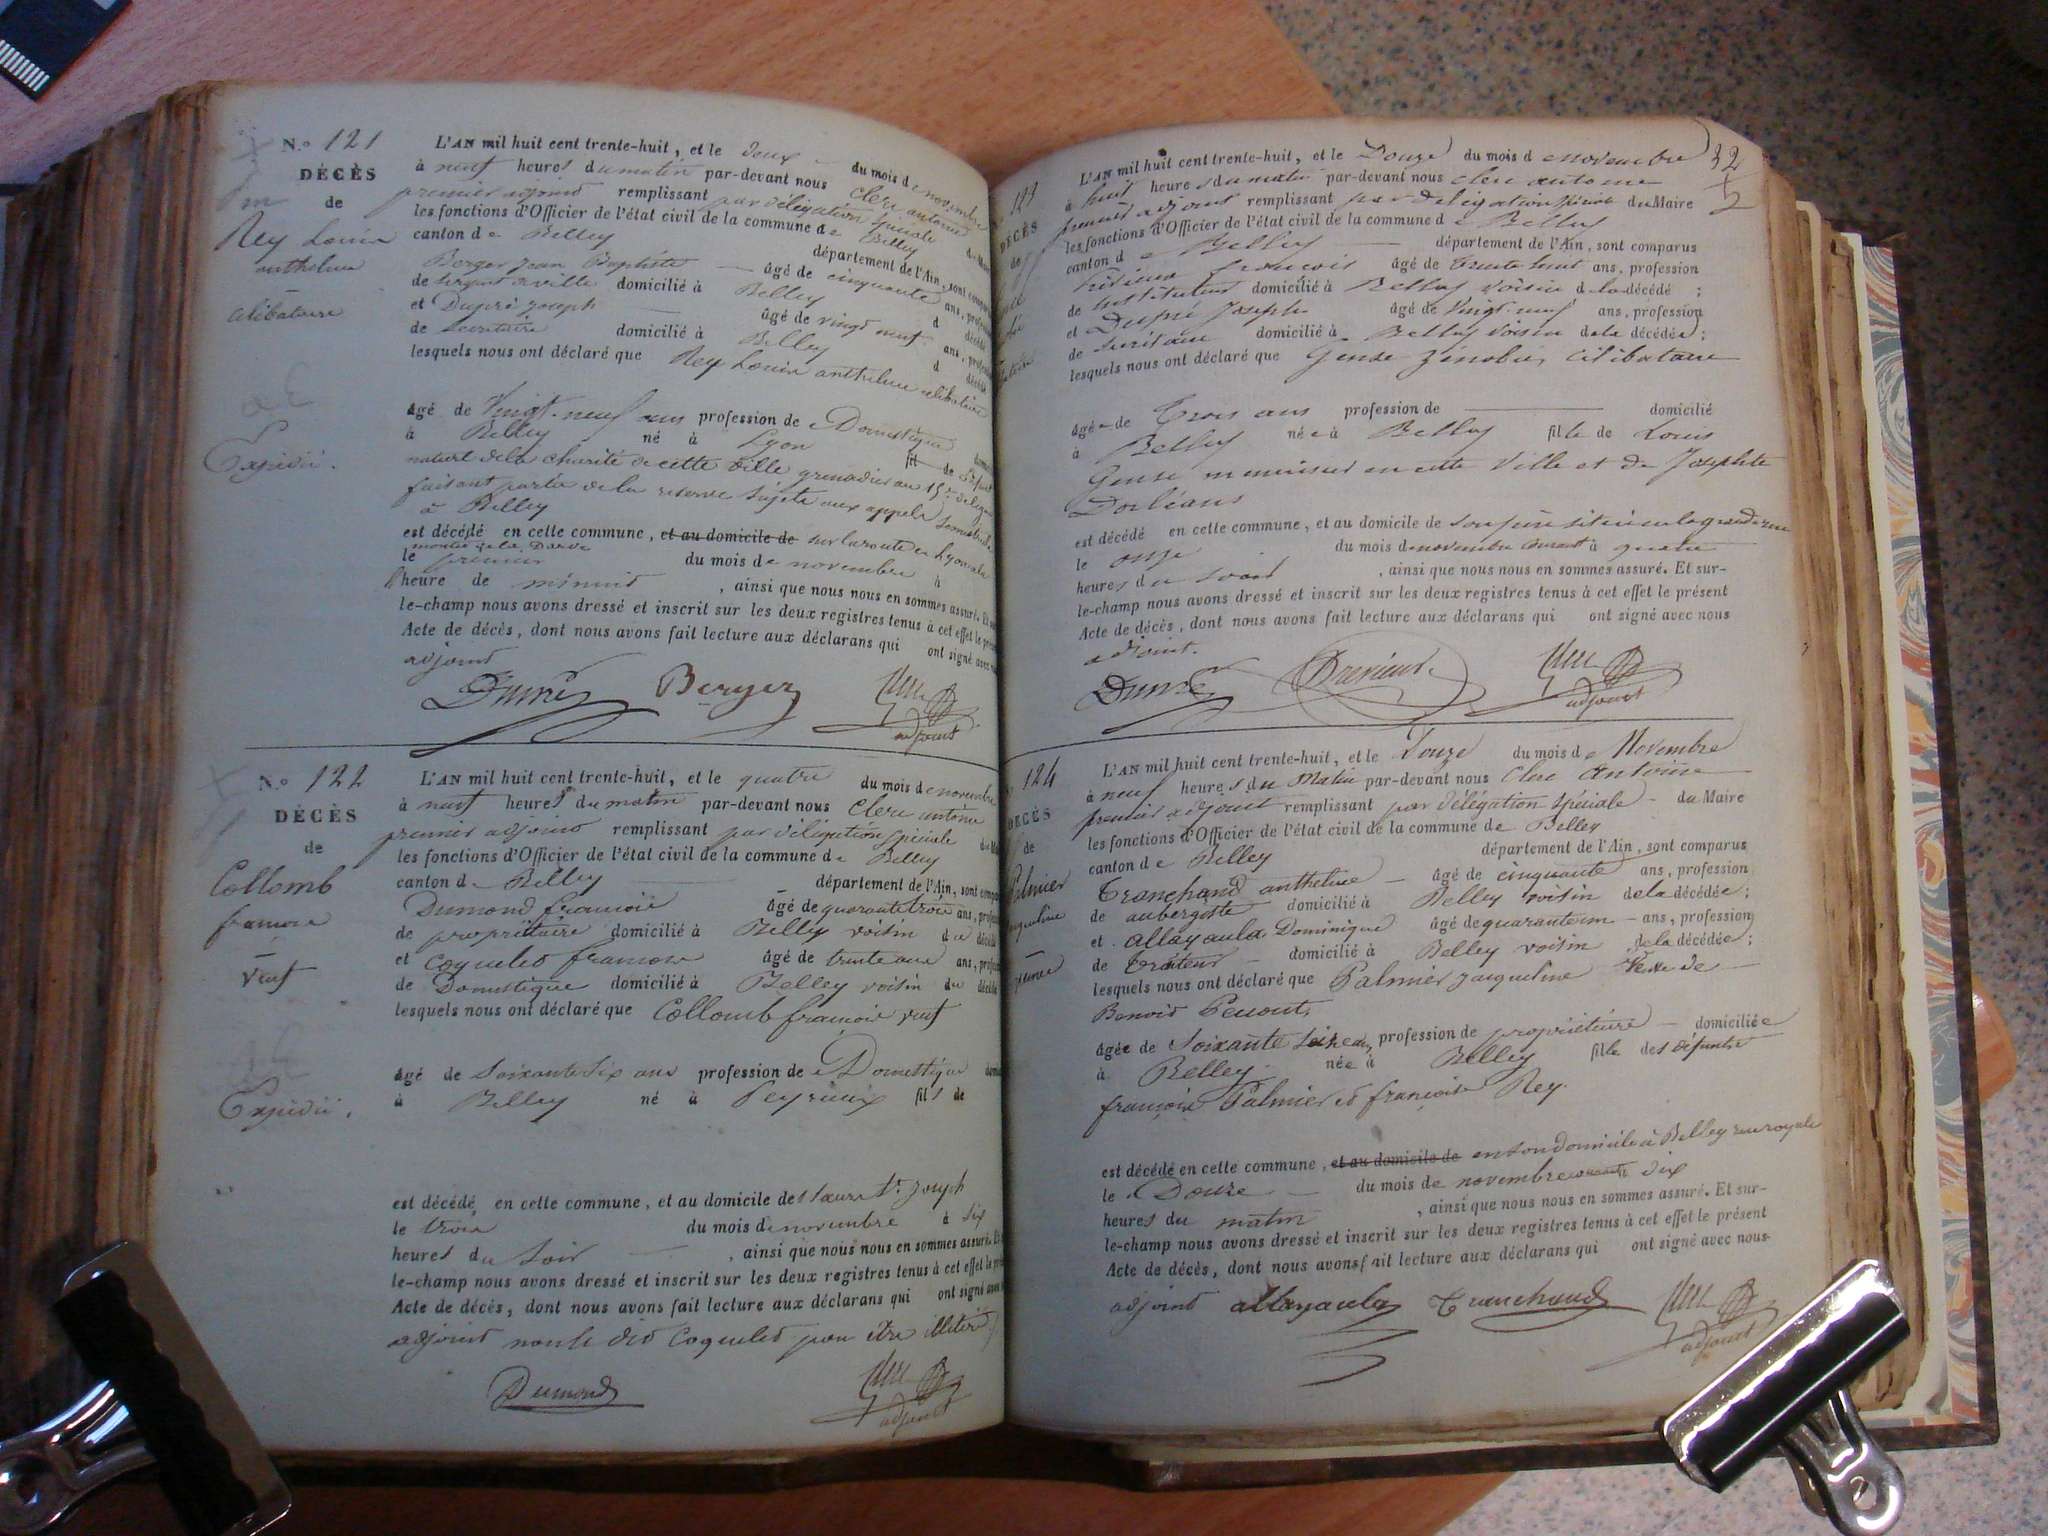 N.o 121
DÉCÈS
de
Rey Louis
anthelme
célibataire
Expédié.
L'AN mil huit cent trente-huit, et le deux du mois de novembre
à neuf heures du matin par-devant nous Clerc antoine
premier adjoint remplissant par délégation spéciale du Maire
les fonctions d'Officier de l'état civil de la commune de Belley
canton de Belley département de l'Ain, sont
Berger Jean Baptiste âgé de cinquante ans,
de sergent de ville domicilié à Belley d décédé
et Dupré Joseph âgé de vingt neuf ans,
de secrétaire domicilié à Belley d décédé
lesquels nous ont déclaré que Rey Louis anthelme célibataire
âgé de Vingt-neuf ans profession de Domestique
à Belley né à Lyon fil de
naturel de la charité de cette ville grenadier au 15e de ligne
faisant partie de la réserve sujete aux appels
à Belley
est décédé en cette commune, et au domicile de sur la route de Lyon
montée de la
le premier du mois de novembre à
l'heure de minuit, ainsi que nous nous en sommes assuré. Et
le-champ nous avons dressé et inscrit sur les deux registres tenus à cet effet le
Acte de décès, dont nous avons fait lecture aux déclarans qui ont signé avec
adjoint
Dupré Berger Clerc
adjoint
N.o 122
DÉCÈS
de
Collomb
françois
veuf
Expédié.
L'AN mil huit cent trente-huit, et le quatre du mois de novembre
à neuf heures du matin par-devant nous Clerc antoine
premier adjoint remplissant par délégation spéciale du
les fonctions d'Officier de l'état civil de la commune de Belley
canton de Belley département de l'Ain, sont
Dumond françois âgé de quarante trois ans,
de propriétaire domicilié à Belley voisin du décédé
et Coquelet françois âgé de trente ans ans,
de Domestique domicilié à Belley voisin du décédé
lesquels nous ont déclaré que Collomb françois veuf
âgé de Soixante six ans profession de Domestique
à Belley né à Peyrieux fils de
est décédé en cette commune, et au domicile des sœurs St. Joseph
le trois du mois de novembre à six
heures du soir, ainsi que nous nous en sommes assuré. Et
le-champ nous avons dressé et inscrit sur les deux registres tenus à cet effet le
Acte de décès, dont nous avons fait lecture aux déclarans qui ont signé
adjoint non le dit Coquelet pour être illitéré
Dumond Clerc
adjoint
32
123
DÉCÈS
de
L'AN mil huit cent trente-huit, et le Douze du mois de novembre
à huit heures du matin par-devant nous clerc antoine
premier adjoint remplissant par délégation spéciale du Maire
les fonctions d'Officier de l'état civil de la commune de Belley
canton de Belley département de l'Ain, sont comparus
françois âgé de trente huit ans, profession
de instituteur domicilié à Belley voisin de la décédé ;
et Dupré Joseph âgé de Vingt-neuf ans, profession
de secrétaire domicilié à Belley voisin de la décédée ;
lesquels nous ont déclaré que Gense Zénobie, célibataire
âgée de Trois ans profession de domicilié
à Belley née à Belley fille de Louis
Gense menuisier en cette Ville et de Josephte
Dorléans
est décédé en cette commune, et au domicile de son père situé en la grande rue
le onze du mois de novembre courant à quatre
heures du soir, ainsi que nous nous en sommes assuré. Et sur-
le-champ nous avons dressé et inscrit sur les deux registres tenus à cet effet le présent
Acte de décès, dont nous avons fait lecture aux déclarans qui ont signé avec nous
adjoint.
Dupré Clerc
adjoint
124
DÉCÈS
de
Palmier
jacqueline
L'AN mil huit cent trente-huit, et le Douze du mois de Novembre
à neuf heures du Matin par-devant nous Clerc Antoine
premier adjoint remplissant par délégation spéciale du Maire
les fonctions d'Officier de l'état civil de la commune de Belley
canton de Belley département de l'Ain, sont comparus
Tranchand anthelme âgé de cinquante ans, profession
de aubergiste domicilié à Belley voisin de la décédée ;
et allayaula Dominique âgé de quarante un ans, profession
de traiteur domicilié à Belley voisin de la décédée ;
lesquels nous ont déclaré que Palmier jacqueline Veuve de
Benoid
âgée de Soixante seize ans, profession de propriétaire domiciliée
à Belley née à Belley fille des défunts
françois Palmier et françoise Rey.
est décédé en cette commune, et au domicile de en son domicile à Belley rue royale
le Douze du mois de novembre courant à dix
heures du matin, ainsi que nous nous en sommes assuré. Et sur-
le-champ nous avons dressé et inscrit sur les deux registres tenus à cet effet le présent
Acte de décès, dont nous avons fait lecture aux déclarans qui ont signé avec nous
adjoint allayaula Tranchand Clerc
adjoint